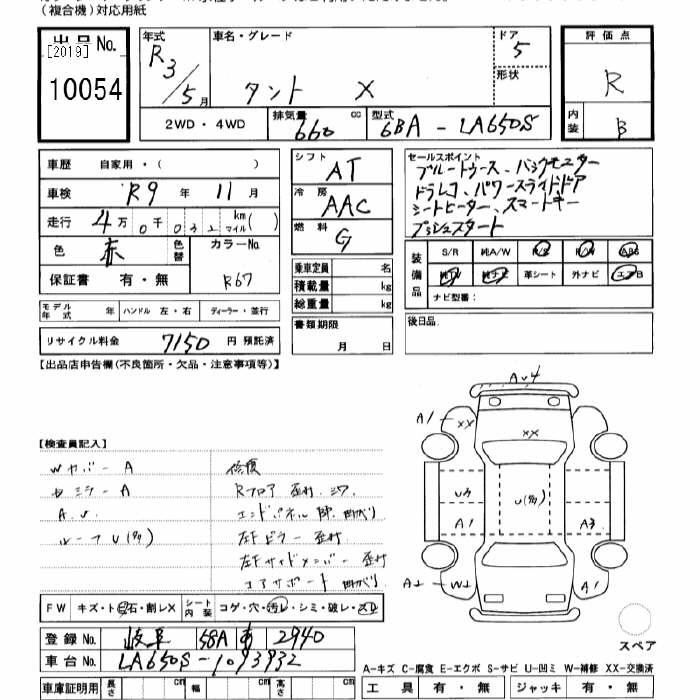 (複合機)対応用紙
出品No.
[2019]
10054
年式 R3/5月
車名・グレード
タント X
ドア 5
形状
評価点
R
内装 B
2WD・4WD
排気量 660 cc
型式 6BA - LA650S
車歴 自家用・( )
車検 R9 年 11 月
走行 4万0千032 km マイル( )
色 赤 色替
カラーNo. R67
保証書 有・無
シフト AT
冷房 AAC
燃料 G
乗車定員 名
積載量 kg
総重量 kg
書類期限
月 日
セールスポイント
ブルートゥース、バックモニター
ドラレコ、パワースライドドア
シートヒーター、スマートキー
プッシュスタート
装備品
S/R 純A/W P/S P/W ABS
純TV 純ナビ 革シート 外ナビ エアB
ナビ型番:
後日品
モデル年式 年 ハンドル 左・右 ディーラー・並行
リサイクル料金 7150 円 預託済
【出品店申告欄(不良箇所・欠品・注意事項等)】
【検査員記入】
Wカバー A
A.U
ルーフU(多)
修復
Rフロア 歪み.シワ
エンドパネル 曲がり
左Fピラー 歪み
左Fサイドメンバー 歪み
コアサポート 曲がり
AU4
A1
XX
XX
U3
U(多)
A1
A3
A2
W2
A1
スペア
FW キズ・ト石・割レX
シート内装 コゲ・穴・汚レ・シミ・破レ・スレ
登録No. 岐阜 58A あ 2940
車台No. LA650S-1093932
A-キズ C-腐食 E-エクボ S-サビ U-凹ミ W-補修 XX-交換済
車庫証明用 長さ cm 幅 cm 高さ cm
工具 有・無 ジャッキ 有・無